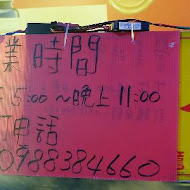 業時間
5:00~晚上11:00
電話
0988384660